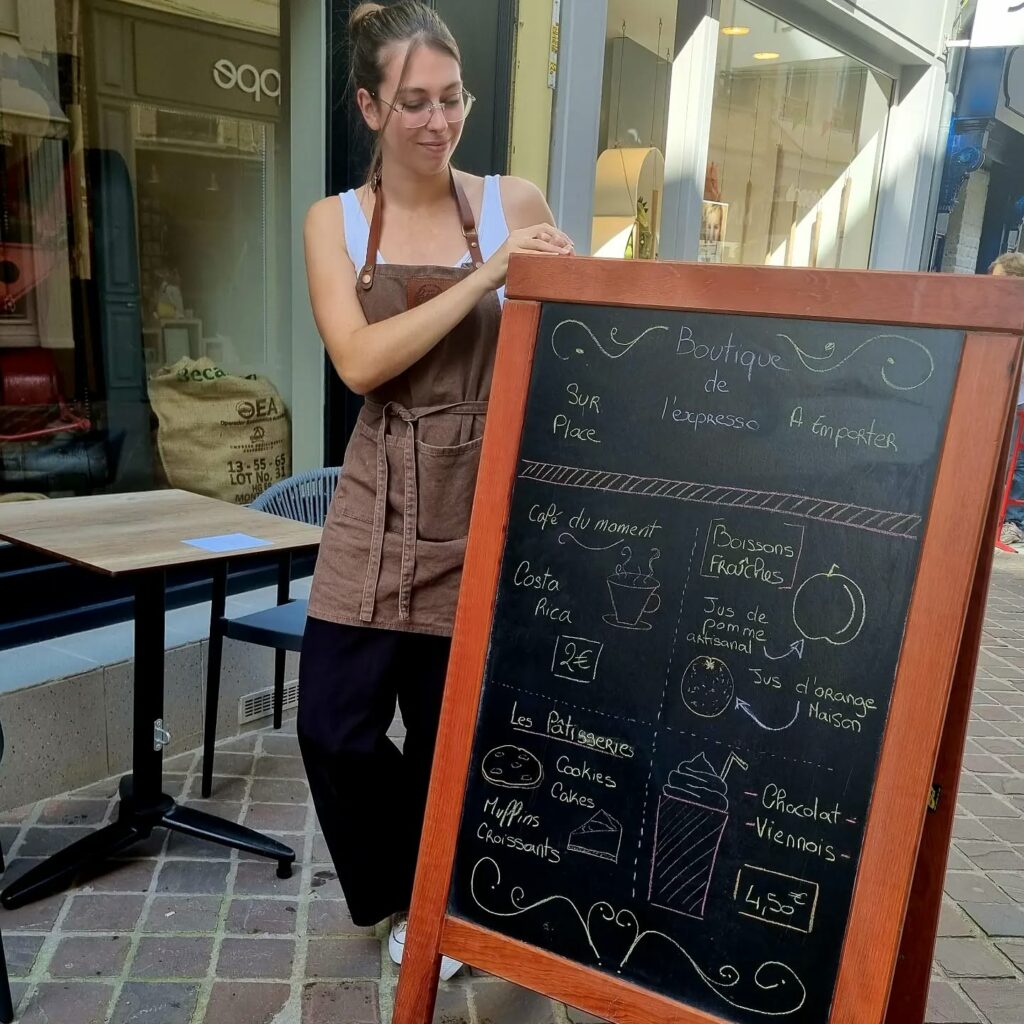 Boutique
de
l'expresso
Sur
Place
A Emporter
Café du moment
Costa
Rica
2€
Boissons
Fraîches
Jus de
pomme
artisanal
Jus d'orange
Maison
Les Pâtisseries
Cookies
Cakes
Muffins
Croissants
- Chocolat -
- Viennois -
4,50€
OEA
13-55-65
LOT No.